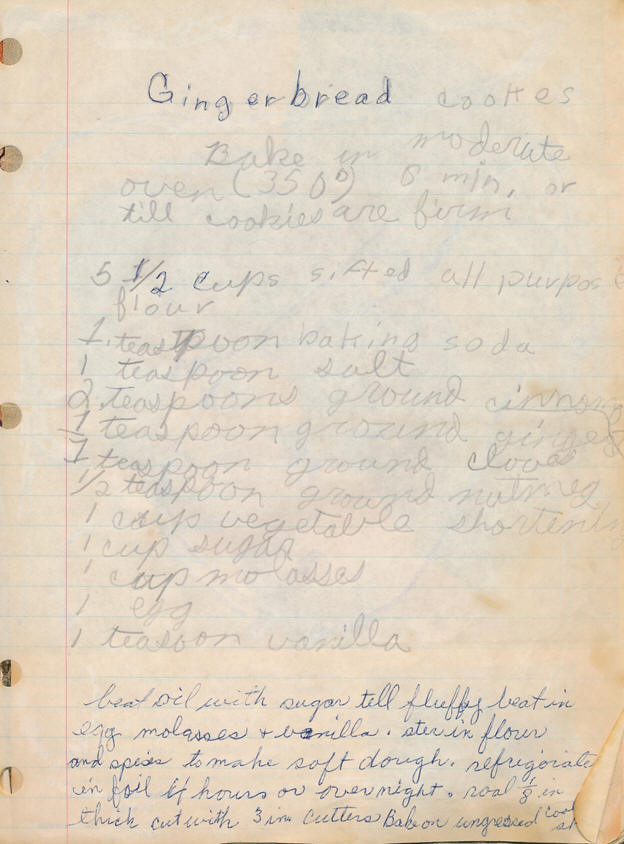 Gingerbread cookies
Bake in moderate
oven (350°) 6 min, or
till cookies are firm
5 1/2 cups sifted all purpose
flour
1 teaspoon baking soda
1 teaspoon salt
2 teaspoons ground cinnom
1 teaspoon ground ginger
1 teaspoon ground cloves
1/2 teaspoon ground nutmeg
1 cup vegetable shortening
1 cup sugar
1 cup molasses
1 egg
1 teasoon vanilla
beat oil with sugar tell fluffy beat in
egg molasses + vanilla. ster in flour
and spices to make soft dough. refrigoriate
in foil 4 hours or over night. roal 1/8 in
thick cut with 3 in. cutters Bake on ungressed